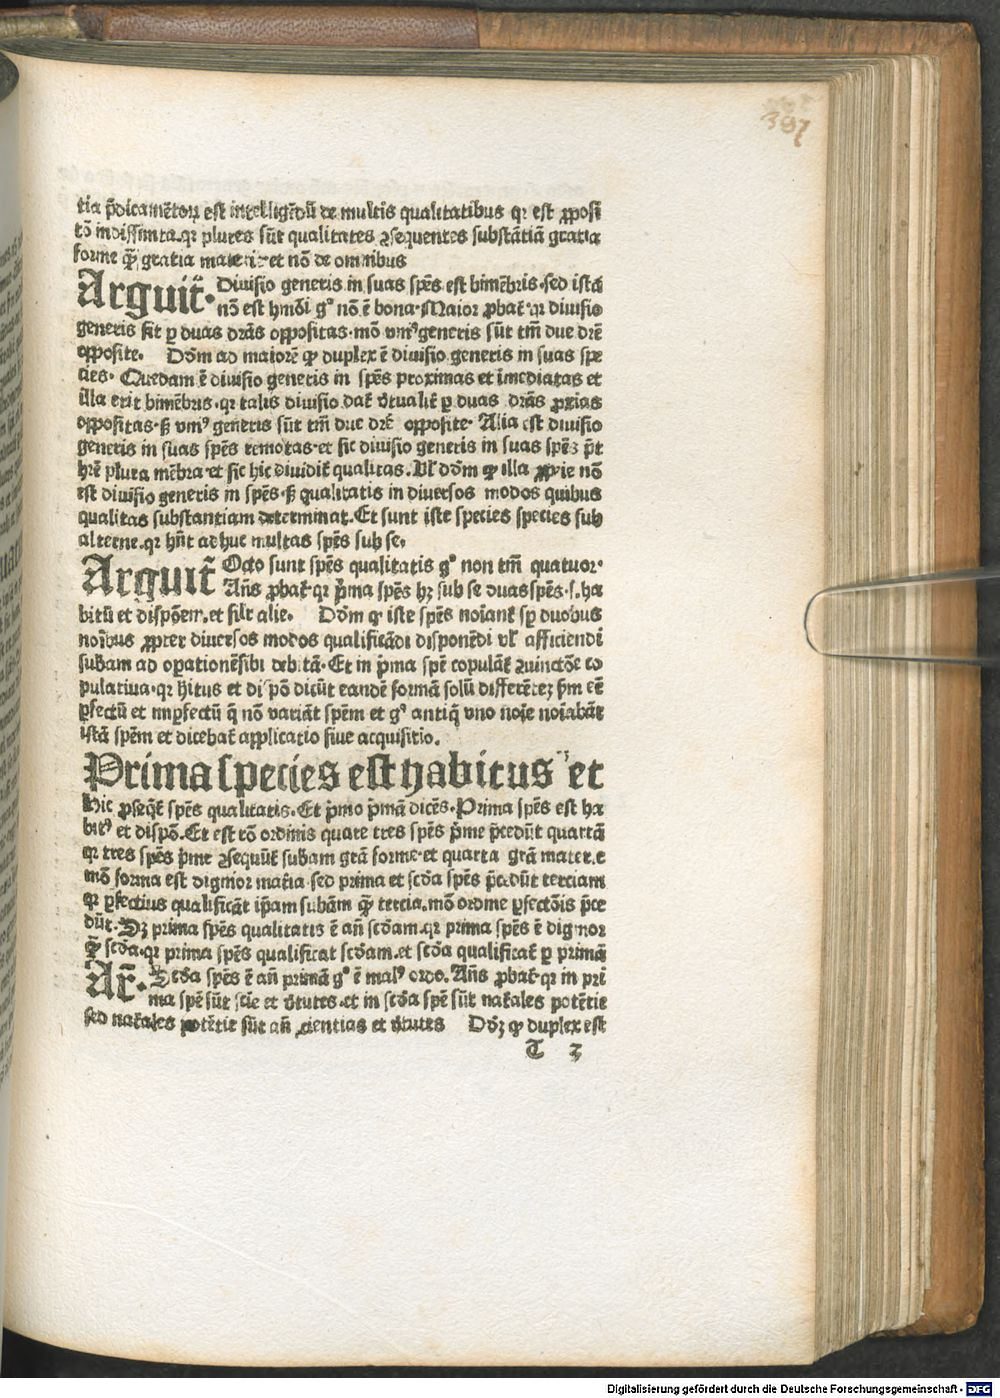 397
tia p̄dicamētoꝝ est intelligēdū de multis qualitatibus qꝛ est ꝓposi
tō indiffinita.qꝛ plures sūt qualitates ꝯsequentes substātiā gratia
forme q̄ꝫ gratia materie et nō de omnibus
Arguit̄. Diuisio generis in suas spēs est bimēbris.sed istā
nō est hmōi gº nō ē bona.Maior ꝓbat̄.qꝛ diuisio
generis fit ꝑ duas drās oppositas.mō vniꝰ generis sūt tm̄ due drē
opposite. Dōm ad maiorē ꝙ duplex ē diuisio generis in suas spe
cies. Quedam ē diuisio generis in spēs proximas et īmediatas et
illa erit bimēbris.qꝛ talis diuisio dat̄ v̄tualit̄ ꝑ duas drās ꝓxias
oppositas.ꝫ vniꝰ generis sūt tm̄ due drē opposite. Alia est diuisio
generis in suas spēs remotas.et sic diuisio generis in suas spēs p̄t
hrē plura mēbra.et sic hic diuidit̄ qualitas. Vl̄ dōm ꝙ illa ꝓprie nō
est diuisio generis in spēs.ꝫ qualitatis in diuersos modos quibus
qualitas substantiam determinat.Et sunt iste species species sub
alterne.qꝛ hn̄t adhuc multas spēs sub se.
Arguit̄ Octo sunt spēs qualitatis gº non tm̄ quatuor.
Añs ꝓbat̄.qꝛ p̄ma spēs hꝫ sub se duas spēs.s.ha
bitū et dispōem.et silr alie. Dōm qꝛ iste spēs noīant̄ sꝑ duobus
noībus ꝓpter diuersos modos qualificādi disponēdi vl̄ afficiendi
subam ad oꝑationē sibi debitā.Et in p̄ma spē copulāt̄ ꝯiunctōe co
pulatiua.qꝛ hitus et dispō dicūt eandē formā solū differēteꝫ ẜm eē
ꝑfectū et inꝑfectū q̄ nō variāt spēm et gº antiq̄ vno noīe noīabāt
istā spēm et dicebat̄ applicatio siue acquisitio.
Prima species est habitus et
Hic ꝓseqt̄ spēs qualitatis.Et p̄mo p̄mā dicēs.Prima spēs est ha
bitꝰ et dispō.Et est rō ordinis quare tres spēs p̄me p̄cedūt quartā
qꝛ tres spēs p̄me ꝯsequūt̄ subam grā forme.et quarta grā materie
mō forma est dignior mat̄ia sed prima et scd̄a spēs p̄cedūt terciam
qꝛ ꝑfectius qualificāt ip̄am subām q̄ꝫ tercia.mō ordine ꝑfectōis p̄ce
dūt. Dꝫ prima spēs qualitatis ē añ scd̄am.qꝛ prima spēs ē dignior
q̄ꝫ scd̄a.qꝛ prima spēs qualificat scd̄am.et scd̄a qualificat̄ ꝑ primā
Ar̄. Scd̄a spēs ē añ primā gº ē malꝰ ordo. Añs ꝓbat̄.qꝛ in pri
ma spē sūt scīe et v̄tutes.et in scd̄a spē sūt nat̄ales potētie
sed nat̄ales potētie sūt añ scientias et v̄tutes Dōꝫ ꝙ duplex est
T 2
Digitalisierung gefördert durch die Deutsche Forschungsgemeinschaft - DFG